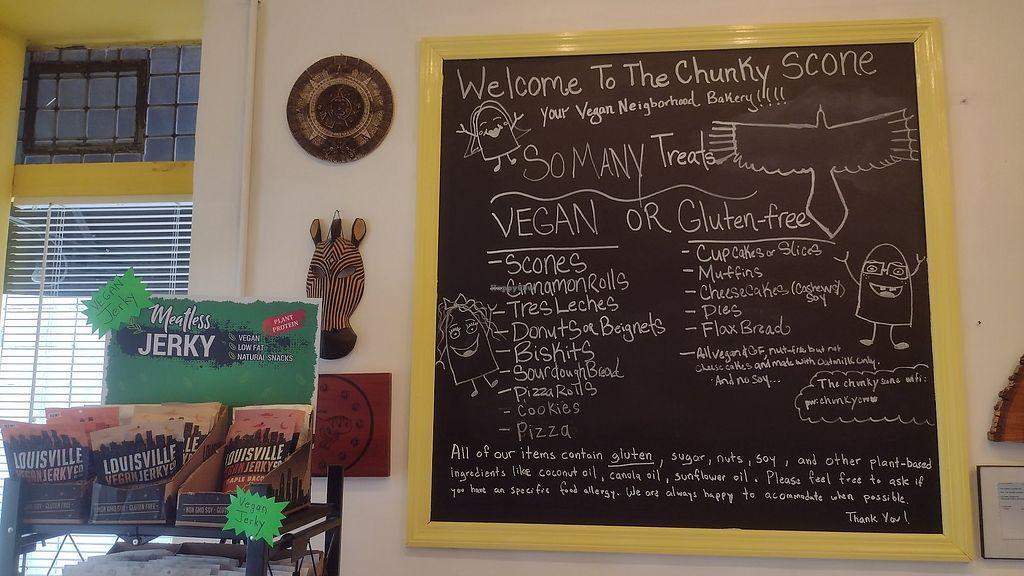 Welcome To The Chunky Scone
Your Vegan Neigborhood Bakery!!!!
SO MANY Treats
VEGAN OR Gluten-free
- Scones
- Cinnamon Rolls
- Tres Leches
- Donuts or Beignets
- Biskits
- Sourdough Bread
- Pizza Rolls
- Cookies
- Pizza
- Cupcakes or Slices
- Muffins
- Cheesecakes (Cashews/
Soy
- Pies
- Flax Bread
- All vegan GF, nut-free but not
cheesecakes and made with oatmilk only.
And no soy...
The chunky scone wifi:
pw:chunkyom
All of our items contain gluten, sugar, nuts, soy, and other plant-based
ingredients like coconut oil, canola oil, sunflower oil. Please feel free to ask if
you have an specific food allergy. We are always happy to acommodate when possible.
Thank You!
VEGAN
Jerky
Meatless
JERKY
PLANT
PROTEIN
VEGAN
LOW FAT
NATURAL SNACKS
LOUISVILLE
VEGAN JERKY CO
LOUISVILLE
VEGAN JERKY CO
LOUISVILLE
VEGAN JERKY CO
MAPLE BACON
NON GMO SOY · GLUTEN FREE
Vegan
Jerky